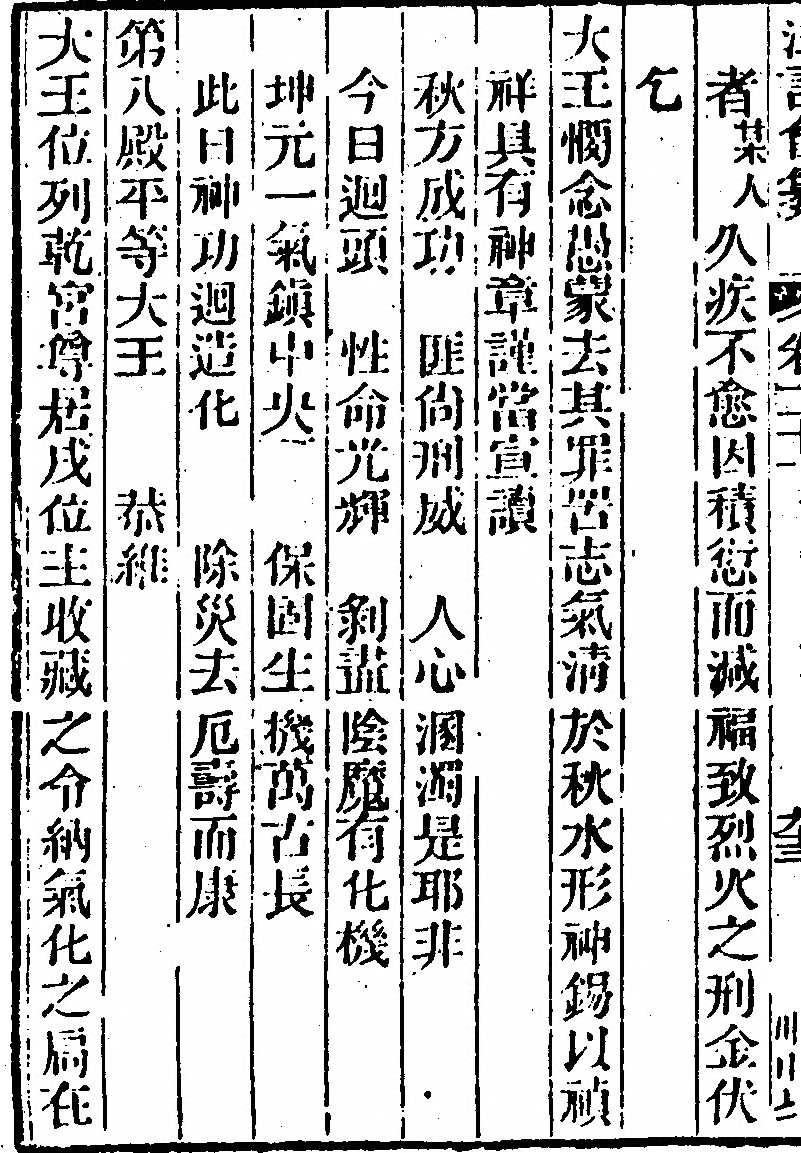 者某人久疾不愈因積愆而減福致烈火之刑金伏
乞
大王憫念愚蒙去其罪咎志氣清於秋水形神錫以禎
祥具有神章謹當宣讀
秋方成功　匪尙刑威　人心溷濁是耶非
今日迴頭　性命光輝　剝盡陰魔有化機
坤元一氣鎭中央　保固生機萬古長
此日神功迴造化　除災去厄壽而康
第八殿平等大王　恭維
大王位列乾宮尊居戌位主收藏之令納氣化之扄在